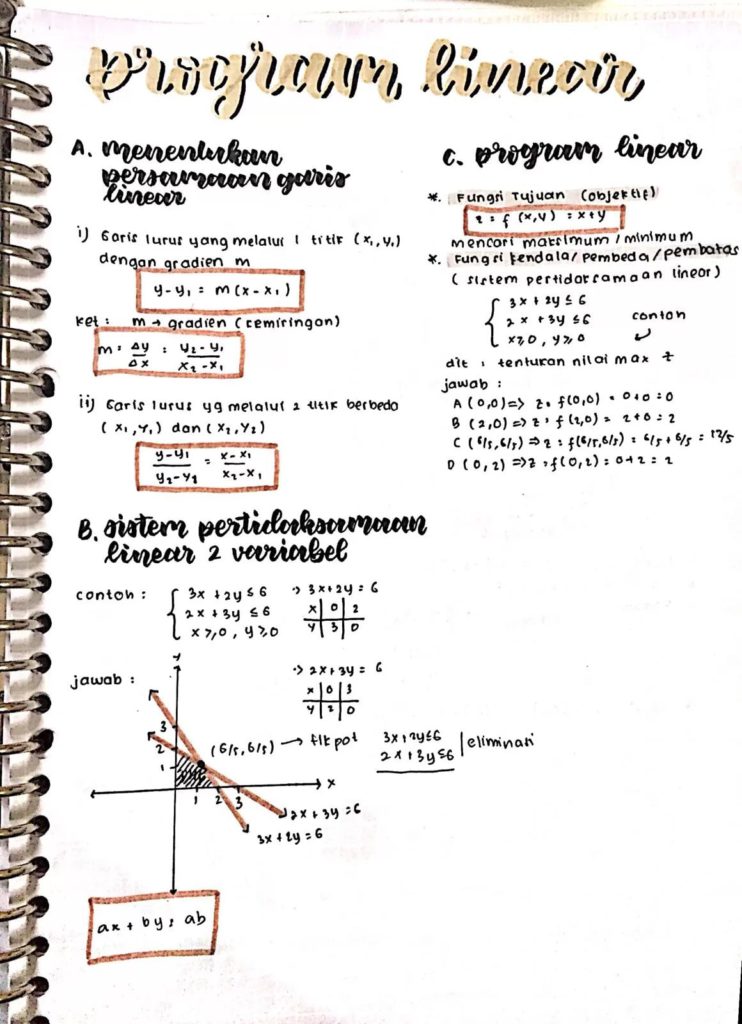 program linear
A. menentukan
persamaan garis
linear
i) Garis lurus yang melalui 1 titik (x₁,y₁)
dengan gradien m
y-y₁ = m(x-x₁)
ket: m → gradien (kemiringan)
m = Δy/Δx = y₂-y₁/x₂-x₁
ii) Garis lurus yg melalui 2 titik berbeda
(x₁,y₁) dan (x₂,y₂)
y-y₁/y₂-y₁ = x-x₁/x₂-x₁
B. sistem pertidaksamaan
linear 2 variabel
contoh : { 3x + 2y ≤ 6
2x + 3y ≤ 6
x ≥ 0, y ≥ 0
-> 3x+2y = 6
x | 0 | 2
y | 3 | 0
jawab :
-> 2x + 3y = 6
x | 0 | 3
y | 2 | 0
y
3
2
1
(6/5, 6/5) → ttk pot
3x+2y≤6
2x+3y≤6 | eliminasi
1 2 3
x
2x + 3y = 6
3x + 2y = 6
ax + by = ab
C. program linear
*. Fungsi Tujuan (objektif)
z = f (x,y) = x+y
mencari maksimum / minimum
*. Fungsi kendala / pembeda / pembatas
(sistem pertidaksamaan linear)
{ 3x + 2y ≤ 6
2x + 3y ≤ 6 contoh
x≥0, y≥0
dit : tentukan nilai max z
jawab :
A (0,0) => z = f(0,0) = 0+0 = 0
B (2,0) => z = f(2,0) = 2+0 = 2
C (6/5,6/5) => z = f(6/5,6/5) = 6/5 + 6/5 = 12/5
D (0,2) => z = f(0,2) = 0+2 = 2